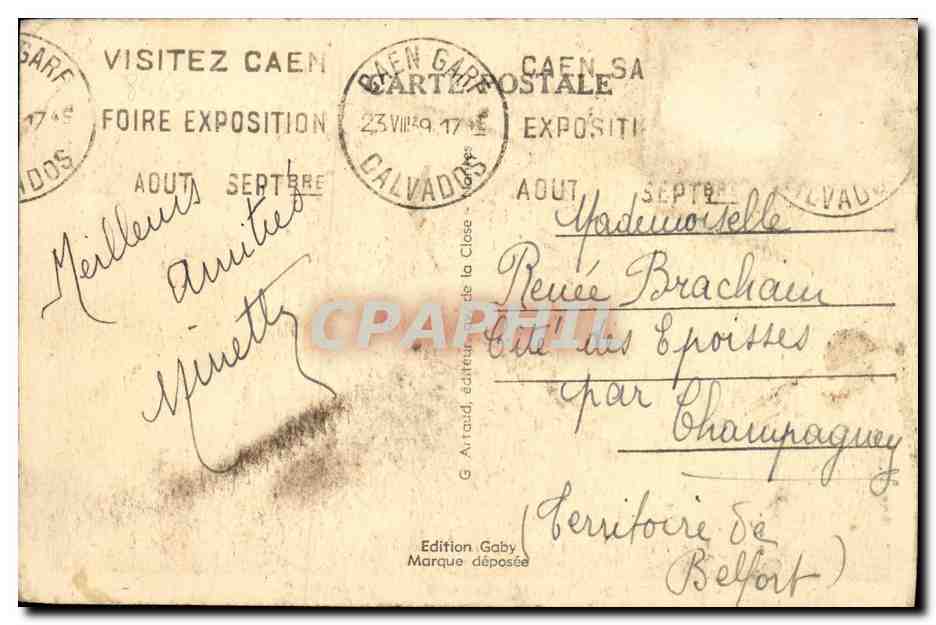 GARE
17 45
ADOS
VISITEZ CAEN
FOIRE EXPOSITION
AOUT SEPTBRE
CARTE POSTALE
CAEN GARE
23 VIII 39. 17 45
CALVADOS
CAEN SA
EXPOSITI
AOUT SEPTBRE
CALVADO
Meilleures
amitiés
Ninette
G Artaud, éditeur, de la Close - Nantes
Edition Gaby
Marque déposée
Mademoiselle
Renée Brachain
Cité des Epoisses
par
Champagney
(Territoire de
Belfort)
CPAPHIL